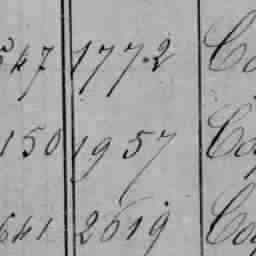 547 1772 Co
150 1957 Co
641 2619 Co